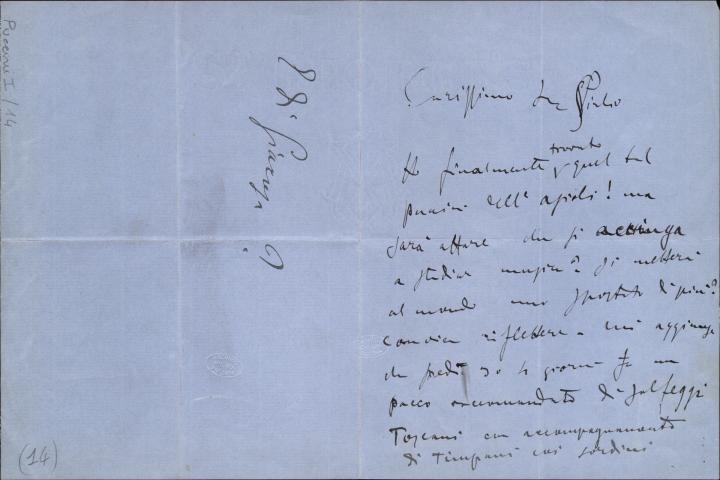 Puccini I / 14
(14)
Carissimo Sor Giulio
Ho finalmente trovato quel tal
puccini dell' apioli! ma
sarà affare che si accinga
a studiar musica? Si metterà
al mondo uno spostato di più?
Convien riflettere e mi aggiunge
che spedì 3 o 4 giorni fa un
pacco raccomandato di solfeggi
Toscani con accompagnamento
di Timpani coi sordini